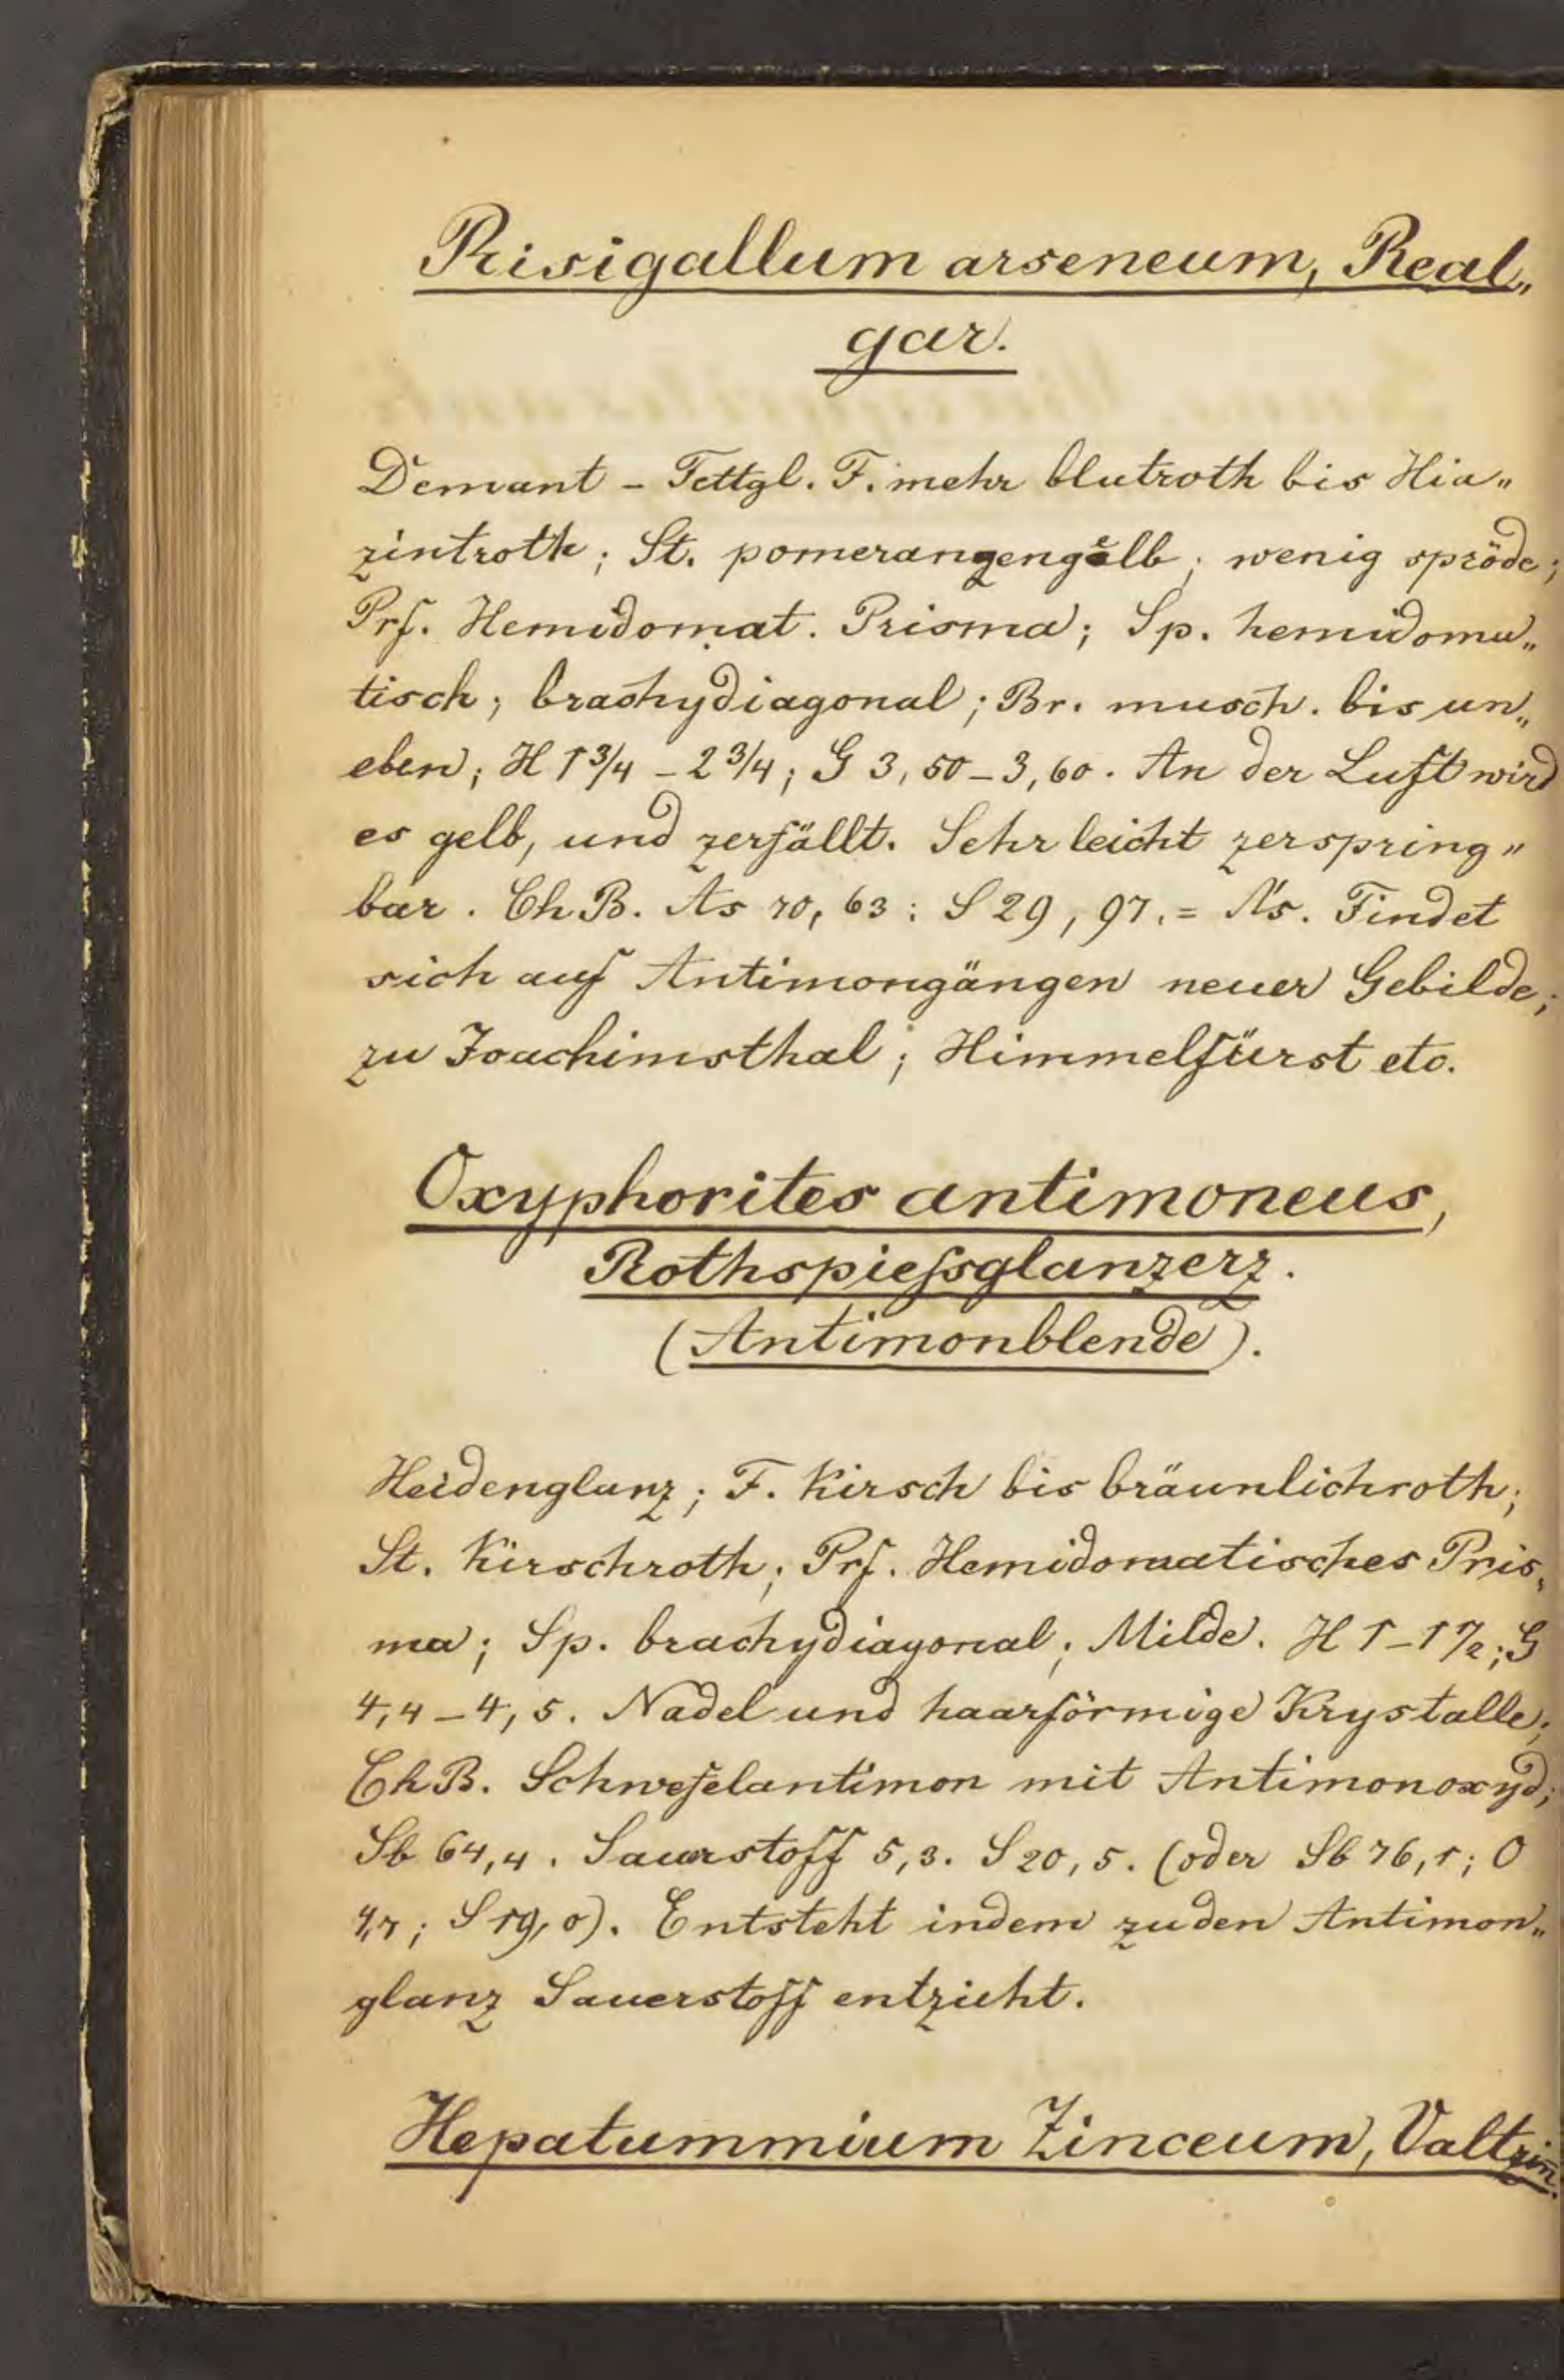 Risigallum arseneum, Real„
gar.
Demant – Fettgl. F. mehr blutroth bis Hia„
zintroth; St. pomeranzengelb; wenig spröde;
Prf. Hemidomat. Prisma; Sp. hemidoma„
tisch; brachydiagonal; Br. musch. bis un„
eben; H 1 3/4 – 2 3/4; G 3,50–3,60. An der Luft wird
es gelb, und zerfällt. Sehr leicht zerspring„
bar. Ch.B. As 70,63: S 29,97.= Findet
sich auf Antimongängen neuer Gebilde;
zu Joachimsthal; Himmelfürst etc.
Oxyphorites antimoneus,
Rothspießglanzerz.
(Antimonblende).
Heidenglanz; F. Kirsch bis bräunlichroth;
St. Kirschroth; Prf. Hemidomatisches Pris„
ma; Sp. brachydiagonal; Milde. H 1–1 1/2; G
4,4–4,5. Nadel und haarförmige Krystalle;
Ch.B. Schwefelantimon mit Antimonoxyd;
Sb 64,4. Sauerstoff 5,3. S 20,5. (oder Sb 76,1; O
4,7; S 19,0). Entsteht indem zu den Antimon„
glanz Sauerstoff entzieht.
Hepatummium Zinceum, Valtzin.